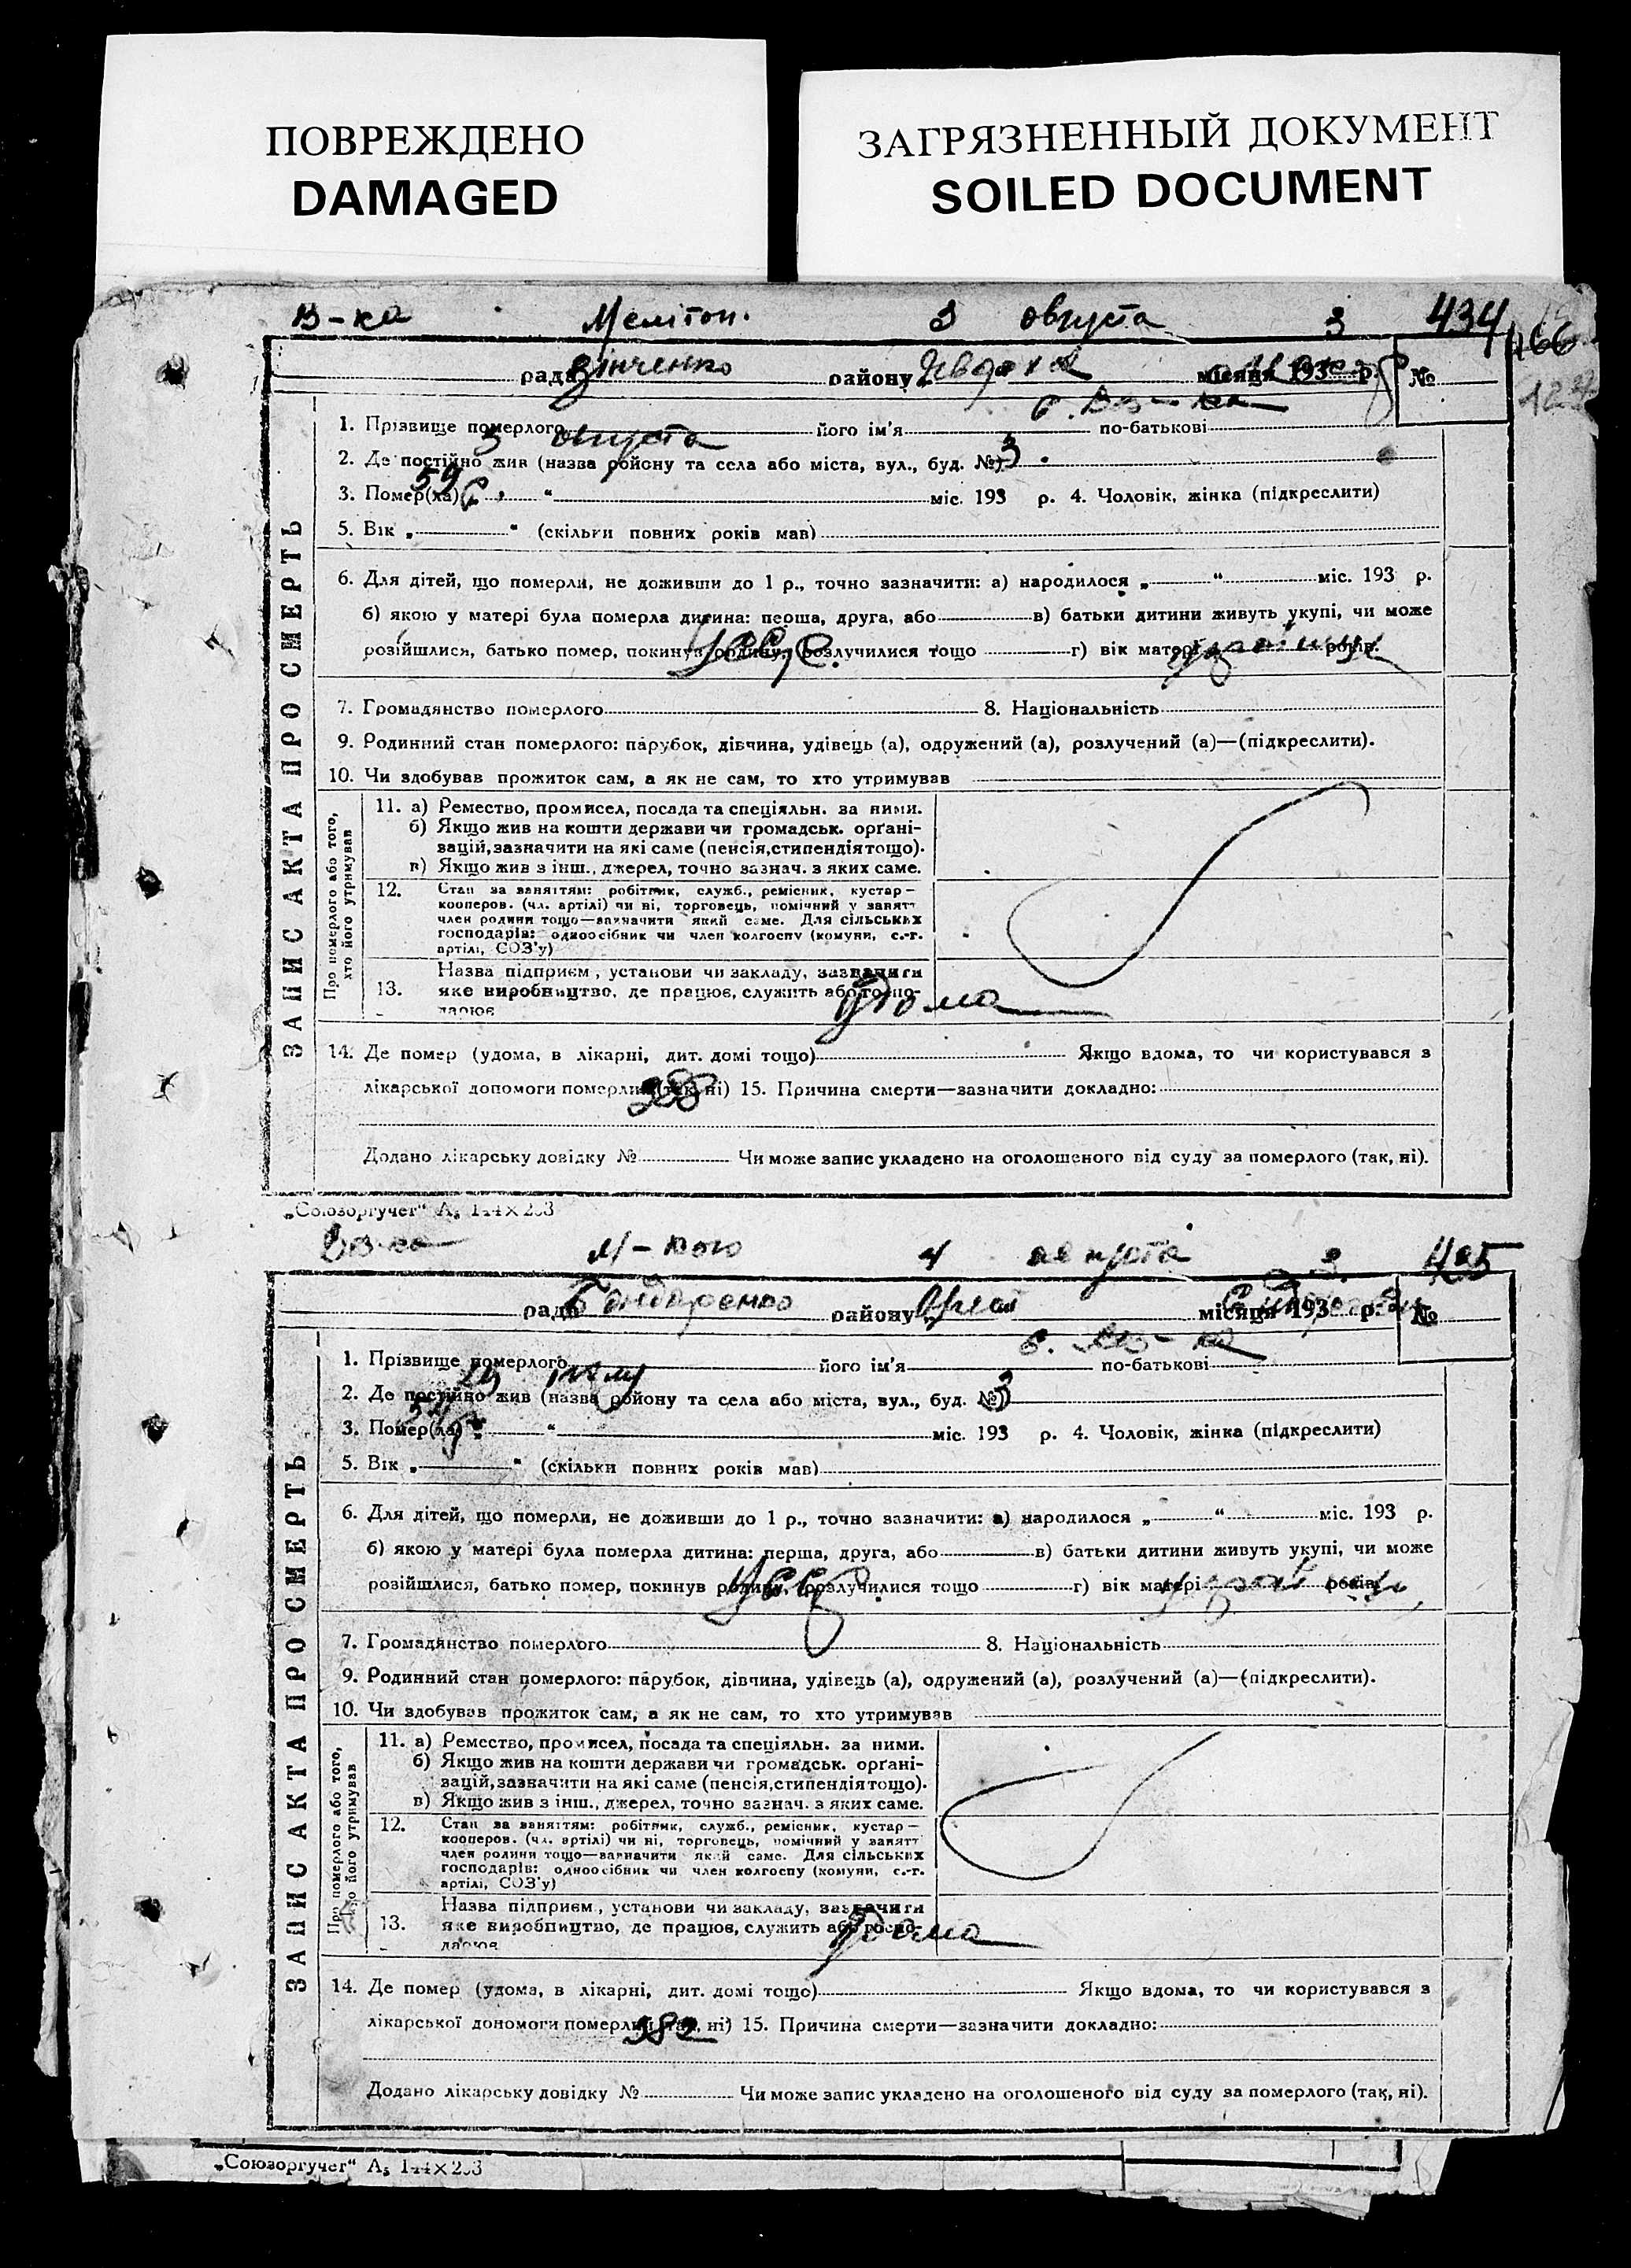 ПОВРЕЖДЕНО
DAMAGED
ЗАГРЯЗНЕННЫЙ ДОКУМЕНТ
SOILED DOCUMENT
В-ка Меліт 3 августа 3 434
166
рада Зінченко району місяця 193 р. №
1. Прізвище померлого його ім'я по-батькові
3 августа
2. Де постійно жив (назва району та села або міста, вул., буд. №) 3
59
3. Помер(ла) „ “ міс. 193 р. 4. Чоловік, жінка (підкреслити)
5. Вік „ “ (скільки повних років мав)
6. Для дітей, що померли, не доживши до 1 р., точно зазначити: а) народилося „ “ міс. 193 р.
б) якою у матері була померла дитина: перша, друга, або в) батьки дитини живуть укупі, чи може
розійшлися, батько помер, покинув родину, розлучилися тощо г) вік матері років.
7. Громадянство померлого 8. Національність
9. Родинний стан померлого: парубок, дівчина, удівець (а), одружений (а), розлучений (а)—(підкреслити).
10. Чи здобував прожиток сам, а як не сам, то хто утримував
ЗАПИС АКТА ПРО СМЕРТЬ
Про померлого або того, хто його утримував
11. а) Ремество, промисел, посада та спеціяльн. за ними.
б) Якщо жив на кошти держави чи громадськ. орґані-
зацій, зазначити на які саме (пенсія, стипендія тощо).
в) Якщо жив з інш., джерел, точно зазнач. з яких саме.
12. Стан за заняттям: робітник, служб., ремісник, кустар—
кооперов. (чл. артілі) чи ні, торговець, помічний у занятт
член родини тощо—зазначити який саме. Для сільських
господарів: одноосібник чи член колгоспу (комуни, с.-г.
артілі, СОЗ'у)
Назва підприєм, установи чи закладу, зазначити
13. яке виробництво, де працює, служить або госпо-
дарює
удома
14. Де помер (удома, в лікарні, дит. домі тощо) Якщо вдома, то чи користувався з
лікарської допомоги померлий (так, ні) 15. Причина смерти—зазначити докладно:
Додано лікарську довідку № Чи може запис укладено на оголошеного від суду за померлого (так, ні).
„Союзоргучет“ А₅ 144×203
4 августа 3 435
рада Бондаренко району місяця 193 р. №
1. Прізвище померлого його ім'я по-батькові
2. Де постійно жив (назва району та села або міста, вул., буд. №) 3
3. Помер(ла) „ “ міс. 193 р. 4. Чоловік, жінка (підкреслити)
5. Вік „ “ (скільки повних років мав)
6. Для дітей, що померли, не доживши до 1 р., точно зазначити: а) народилося „ “ міс. 193 р.
б) якою у матері була померла дитина: перша, друга, або в) батьки дитини живуть укупі, чи може
розійшлися, батько помер, покинув родину, розлучилися тощо г) вік матері років
7. Громадянство померлого 8. Національність
9. Родинний стан померлого: парубок, дівчина, удівець (а), одружений (а), розлучений (а)—(підкреслити).
10. Чи здобував прожиток сам, а як не сам, то хто утримував
ЗАПИС АКТА ПРО СМЕРТЬ
Про померлого або того, хто його утримував
11. а) Ремество, промисел, посада та спеціяльн. за ними.
б) Якщо жив на кошти держави чи громадськ. орґані-
зацій, зазначити на які саме (пенсія, стипендія тощо).
в) Якщо жив з інш., джерел, точно зазнач. з яких саме.
12. Стан за заняттям: робітник, служб., ремісник, кустар—
кооперов. (чл. артілі) чи ні, торговець, помічний у занятт
член родини тощо—зазначити який саме. Для сільських
господарів: одноосібник чи член колгоспу (комуни, с.-г.
артілі, СОЗ'у)
Назва підприєм, установи чи закладу, зазначити
13. яке виробництво, де працює, служить або госпо-
дарює
удома
14. Де помер (удома, в лікарні, дит. домі тощо) Якщо вдома, то чи користувався з
лікарської допомоги померлий (так, ні) 15. Причина смерти—зазначити докладно:
382
Додано лікарську довідку № Чи може запис укладено на оголошеного від суду за померлого (так, ні).
„Союзоргучет“ А₅ 144×203